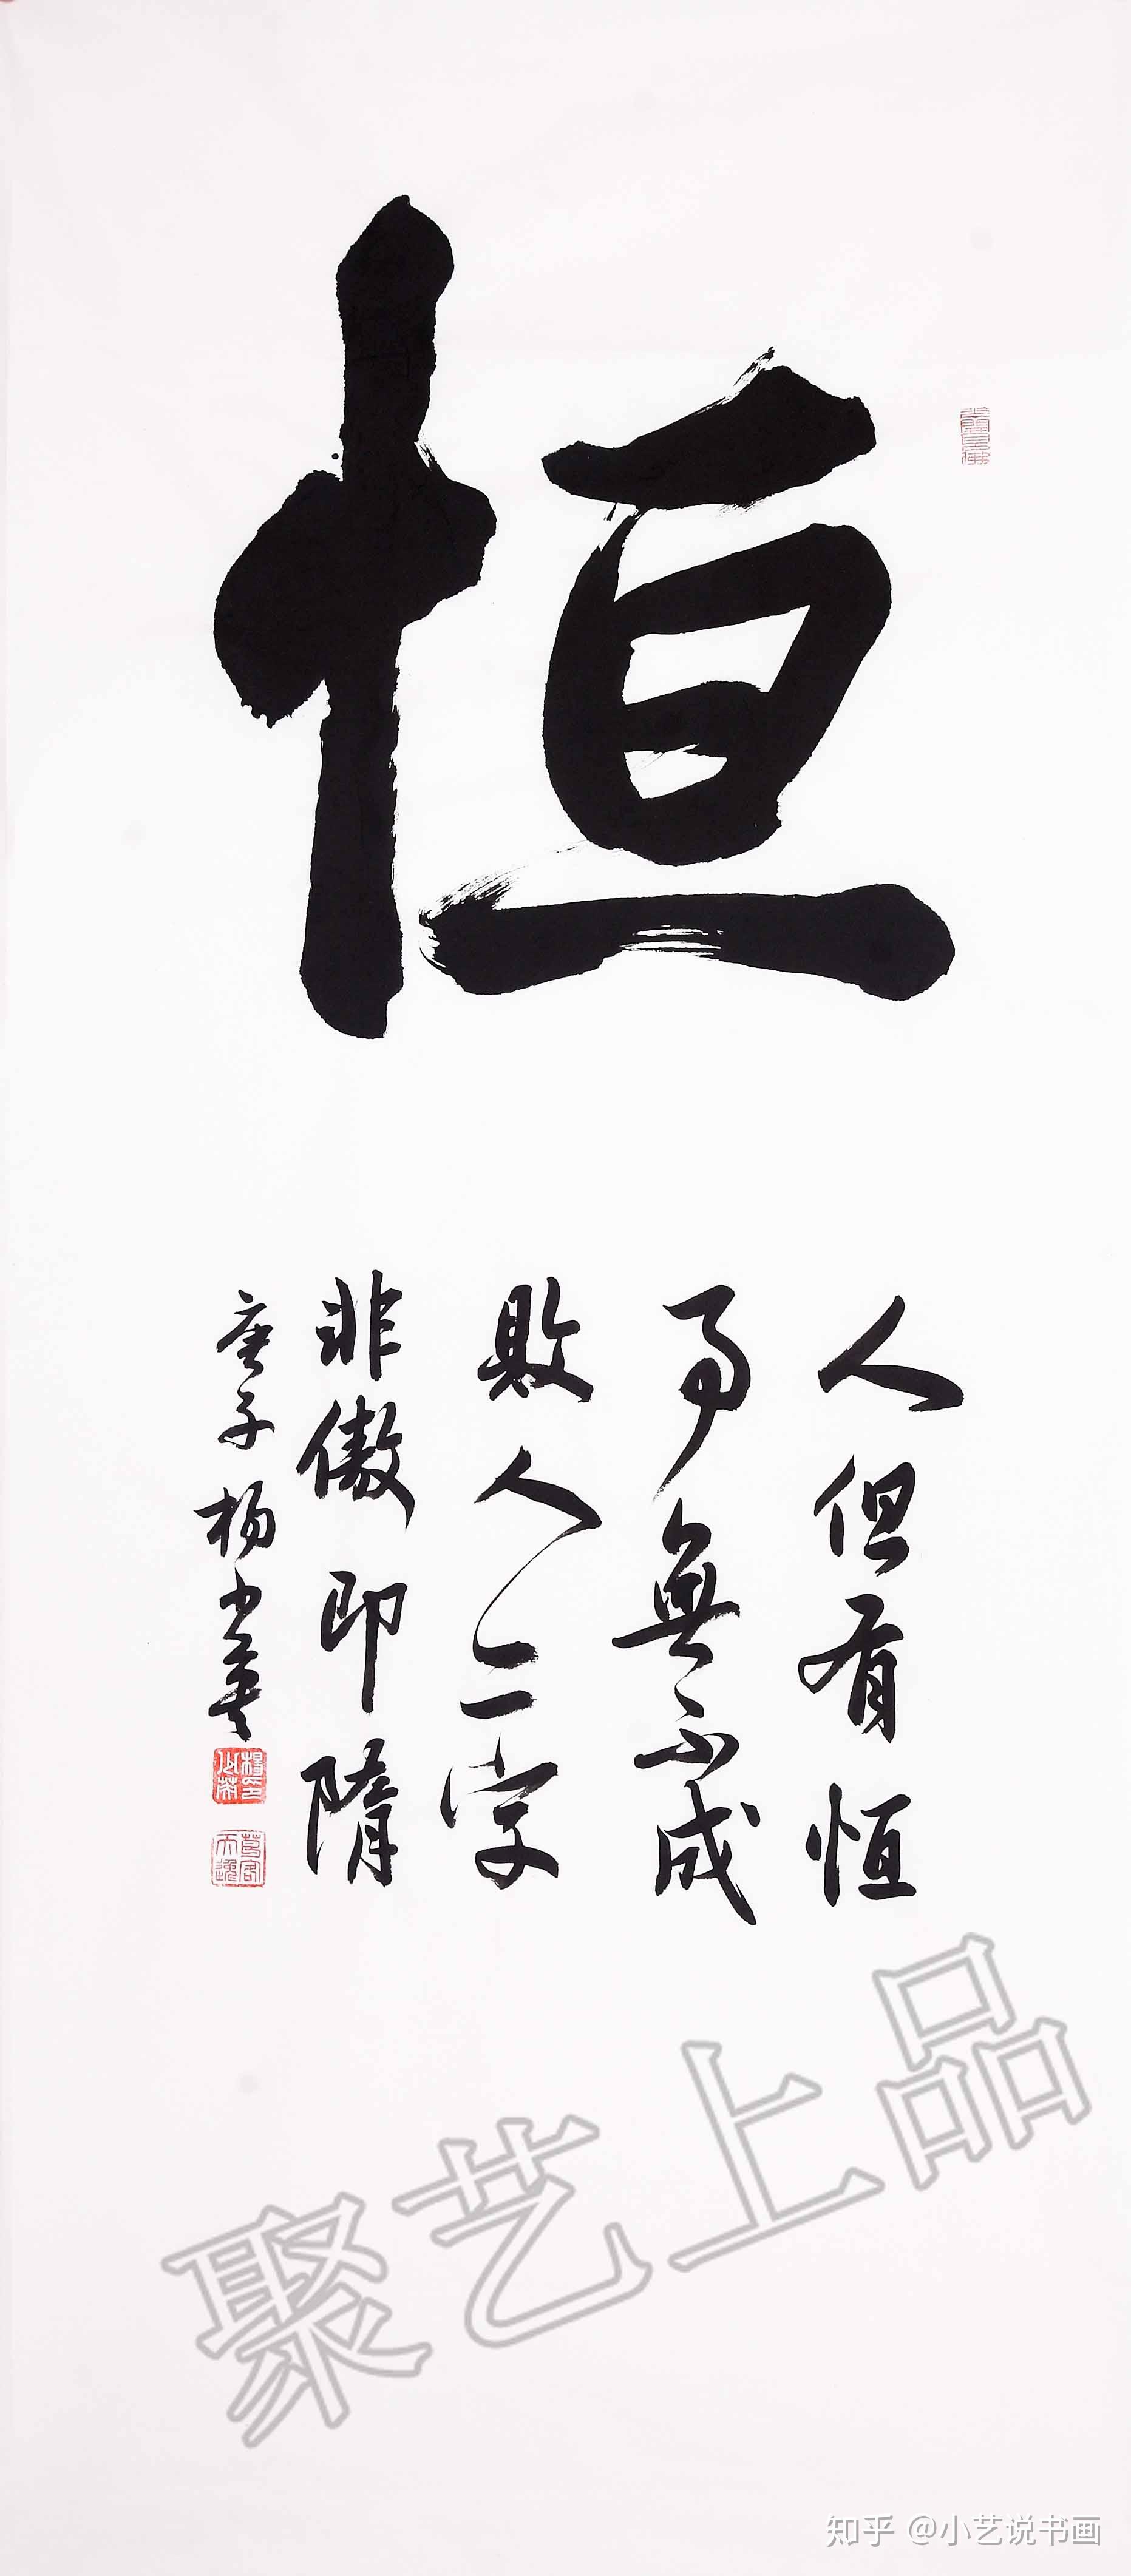 恒
人但有恒
事無不成
敗人二字
非傲即隋
庚子杨少英
聚艺上品
知乎 @小艺说书画